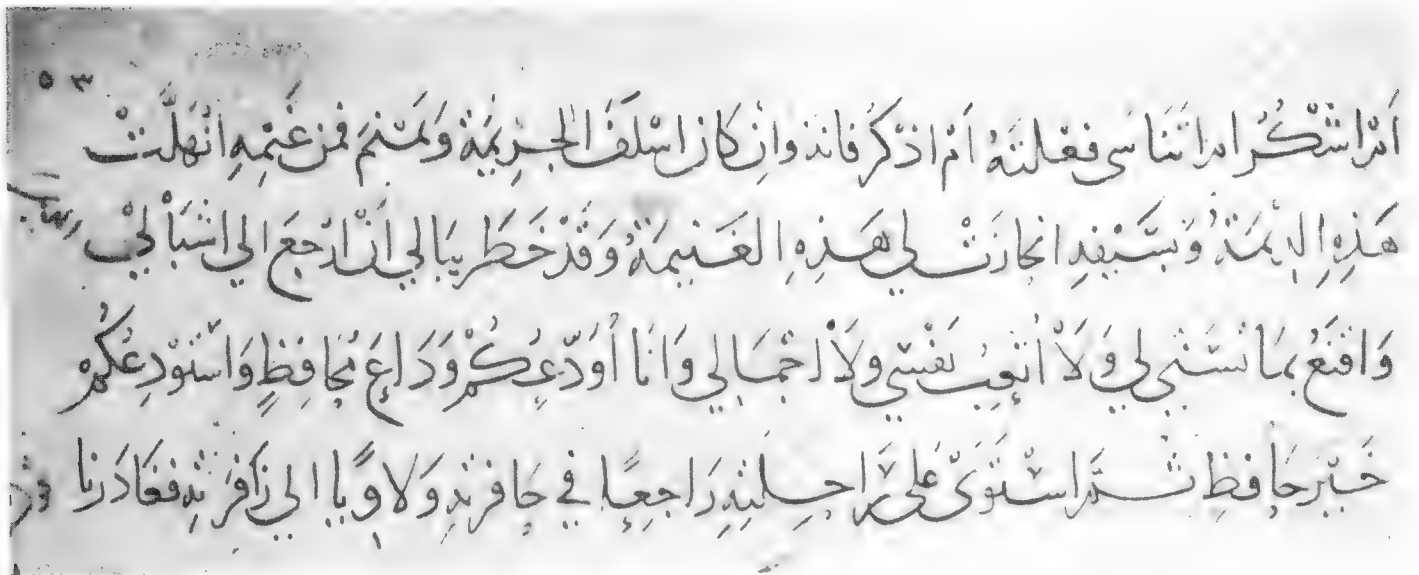 ٥٣
أم اشكر أم اتناسى فعلته أم اذكر فانه وان كان اسلف الجريمة ونمنم فمن غيمه انهلت
هذه الديمة وبسيفه انحازت لي هذه الغنيمة وقد خطر ببالي أن ارجع الى اشبالي
واقنع بما تسنى لي ولا اتعب نفسي ولا اجمالي وانا أودعكم وداع محافظ واستودعكم
خير حافظ ثم استوى على راحلته راجعا في حافرته ولاويا الى زافرته فغادرنا